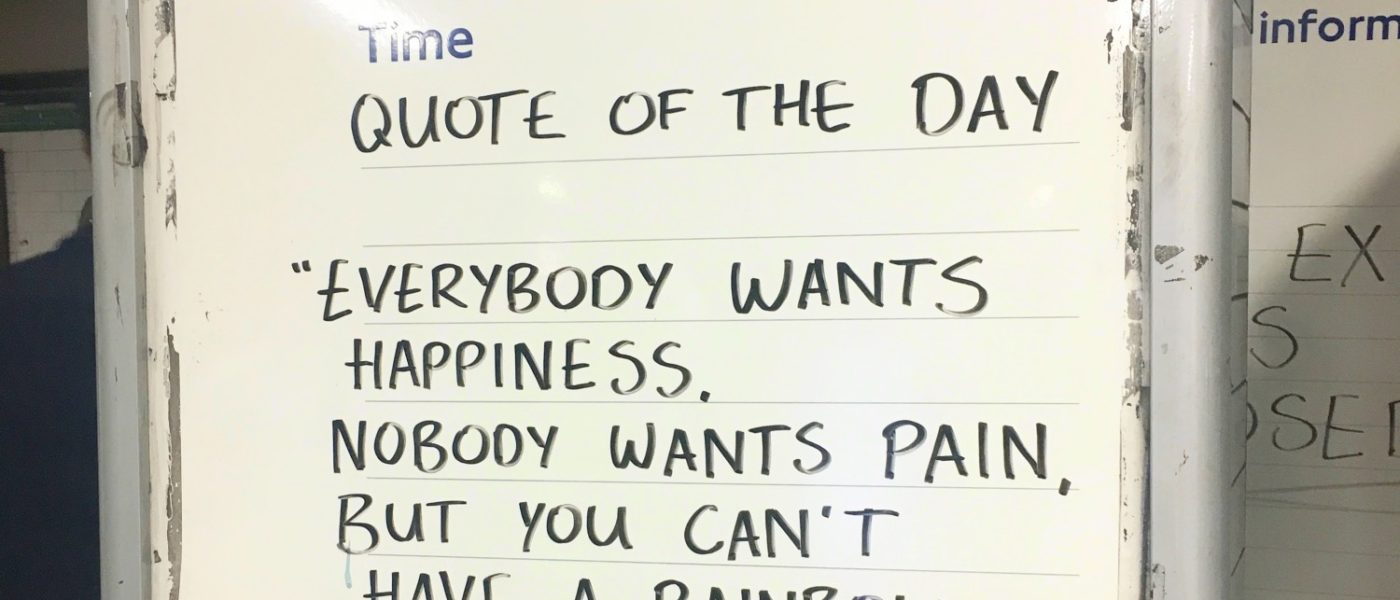 Time
QUOTE OF THE DAY
"EVERYBODY WANTS
HAPPINESS.
NOBODY WANTS PAIN,
BUT YOU CAN'T
HAVE A
inform
EX
S
OSE